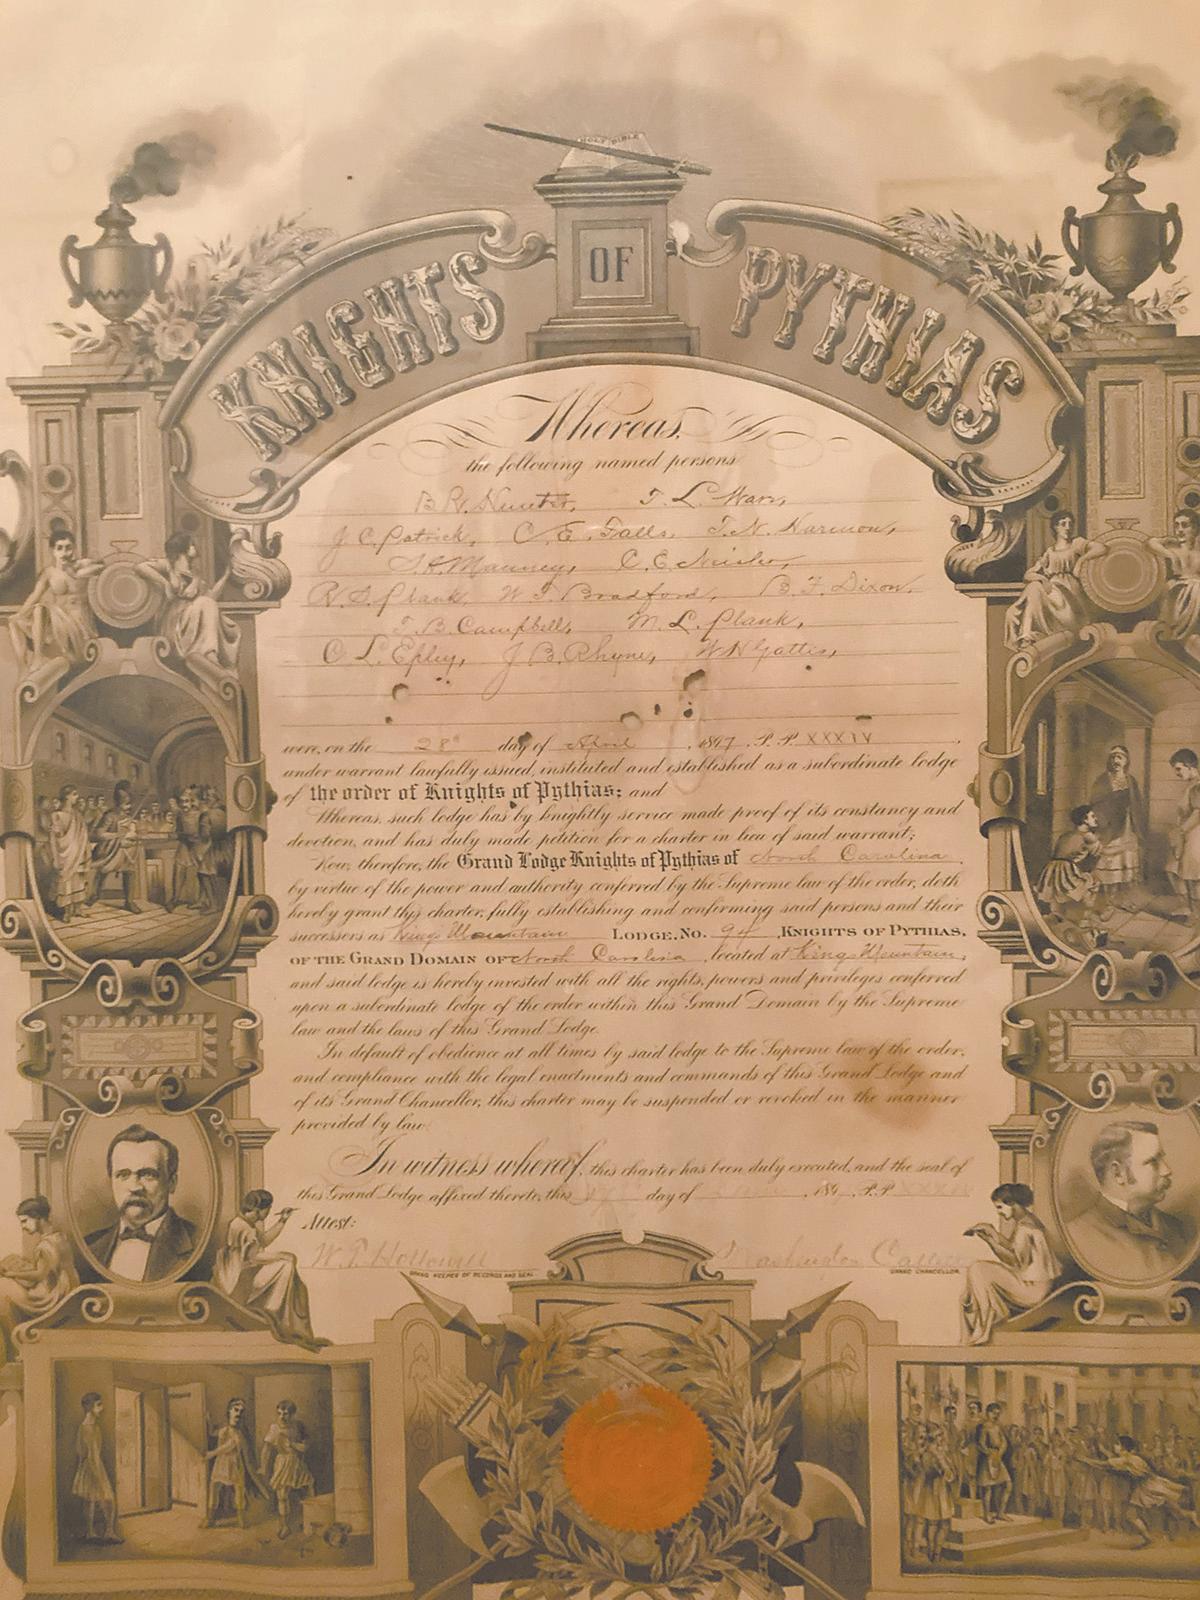 HOLY BIBLE
KNIGHTS OF PYTHIAS
Whereas,
the following named persons
B. R. Hunter, T. L. Ware,
J. C. Patrick, C. E. Falls, T. N. Harmon,
Mauney, C. E.
R. S. Plank, W. T. Bradford, B. F. Dixon,
T. B. Campbell, M. L. Plank,
O. L. Epley, J. B. Rhyne, W H Gattis,
were, on the 28" day of April, 1897, P. P. XXXIV
under warrant lawfully issued, instituted and established as a subordinate lodge
of the order of Knights of Pythias; and
Whereas, such lodge has by knightly service made proof of its constancy and
devotion, and has duly made petition for a charter in lieu of said warrant;
Now, therefore, the Grand Lodge Knights of Pythias of North Carolina
by virtue of the power and authority conferred by the Supreme law of the order, doth
hereby grant this charter, fully establishing and confirming said persons and their
successors as Kings Mountain LODGE, NO. 94, KNIGHTS OF PYTHIAS,
OF THE GRAND DOMAIN OF North Carolina, located at Kings Mountain,
and said lodge is hereby invested with all the rights, powers and privileges conferred
upon a subordinate lodge of the order within this Grand Domain by the Supreme
law and the laws of this Grand Lodge.
In default of obedience at all times by said lodge to the Supreme law of the order,
and compliance with the legal enactments and commands of this Grand Lodge and
of its Grand Chancellor, this charter may be suspended or revoked in the manner
provided by law.
In witness whereof, this charter has been duly executed, and the seal of
this Grand Lodge affixed thereto, this day of , 189 , P. P.
Attest:
W. T. Hollowell Washington
GRAND KEEPER OF RECORDS AND SEAL GRAND CHANCELLOR.